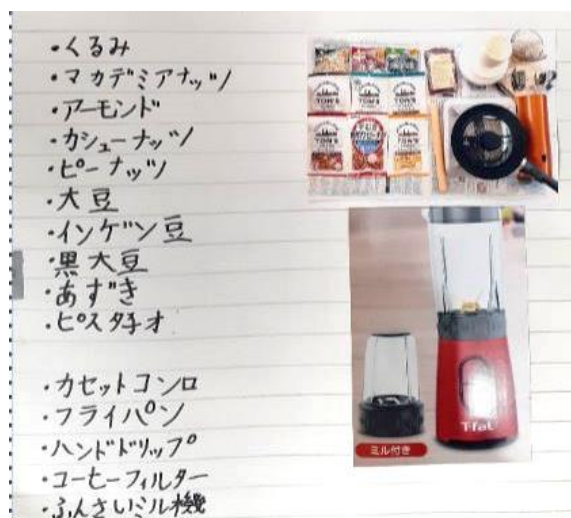 ・くるみ
・マカデミアナッツ
・アーモンド
・カシューナッツ
・ピーナッツ
・大豆
・インゲン豆
・黒大豆
・あずき
・ピスタチオ
・カセットコンロ
・フライパン
・ハンドドリップ
・コーヒーフィルター
・ふんさいミル機
TON'S
TON'S
TON'S
TON'S
T-fal
ミル付き